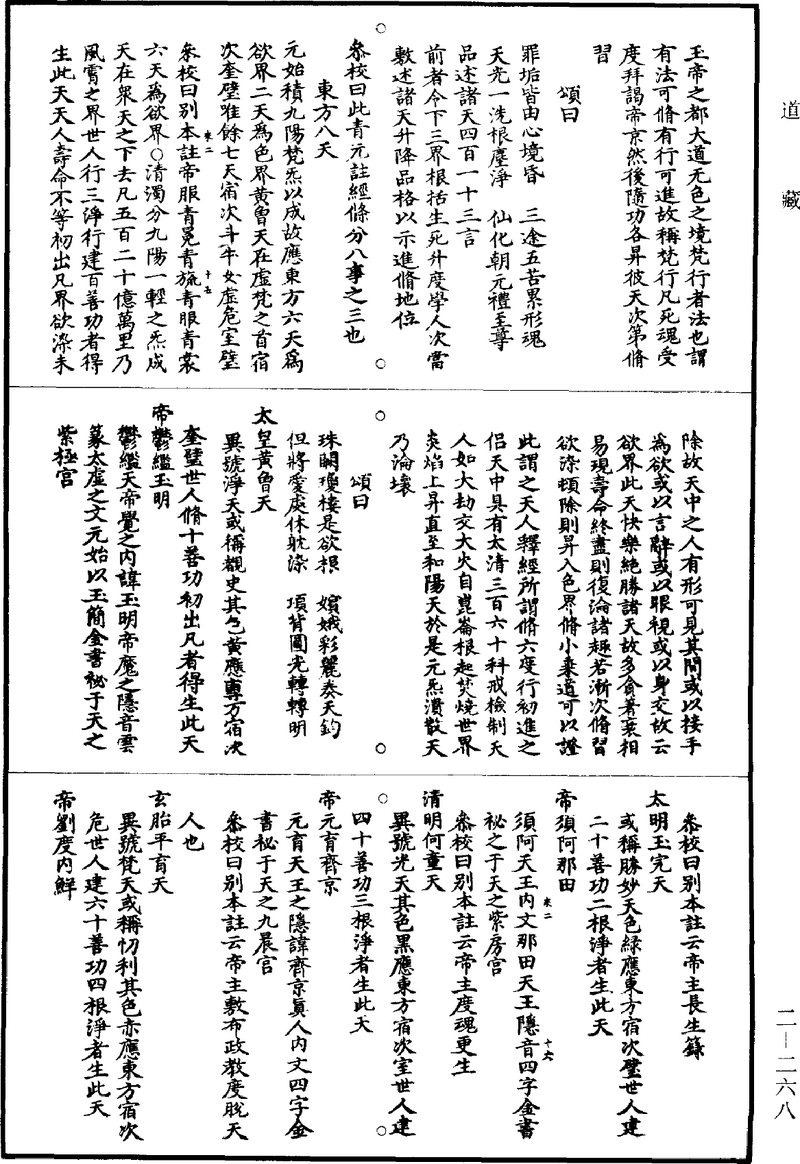 道藏
玉帝之都大道无色之境梵行者法也謂
有法可脩有行可進故稱梵行凡死魂受
度拜謁帝京然後隨功各昇彼天次第脩
習
頌曰
罪垢皆由心境昏　三途五苦累形魂
天光一洗根塵淨　仙化朝元禮至尊
品述諸天四百一十三言
前者令下三界根括生死升度學人次當
敷述諸天升降品格以示進脩地位
叅校曰此青元註經條分八事之三也
東方八天
元始積九陽梵炁以成故應東方六天爲
欲界二天爲色界黄曾天在虚梵之首宿
次奎壁雖餘七天宿次斗牛女虚危室壁
叅校曰別本註帝服青冕青旒青服青裳
六天爲欲界○清濁分九陽一輕之炁成
天在衆天之下去凡五百二十億萬里乃
風霄之界世人行三淨行建百善功者得
生此天天人壽命不等初出凡界欲染未
除故天中之人有形可見其間或以接手
爲欲或以言辭或以眼視或以身交故云
欲界此天快樂絶勝諸天故多貪著衰相
易現壽命終盡則復淪諸趣若漸次脩習
欲染頓除則昇入色界脩小乗道可以證
此謂之天人釋經所謂脩六度行初進之
侣天中具有太清三百六十科戒檢制天
人如大劫交大火自崑崙根起焚燒世界
炎焰上昇直至和陽天於是元炁潰散天
乃淪壞
頌曰
珠闕瓊樓是欲根　嬪娥彩麗奏天鈞
但將愛處休躭染　項背圓光轉轉明
太皇黄曾天
異號淨天或稱觀史其色黄應專方宿次
奎壁世人脩十善功初出凡者得生此天
帝鬱繿玉明
鬱繿天帝覺之内諱玉明帝魔之隱音雲
篆太虚之文元始以玉簡金書祕于天之
紫極宫
叅校曰別本註云帝主長生籙
太明玉完天
或稱勝妙天色緑應東方宿次壁世人建
二十善功二根淨者生此天
帝須阿那田
須阿天王内文那田天王隱音四字金書
祕之于天之紫房宫
叅校曰別本註云帝主度魂更生
清明何童天
異號光天其色黑應東方宿次室世人建
四十善功三根淨者生此天
帝元育齊京
元育天王之隱諱齊京眞人内文四字金
書祕于天之九晨宫
叅校曰別本註云帝主敷布政教度脱天
人也
玄胎平育天
異號梵天或稱忉利其色赤應東方宿次
危世人建六十善功四根淨者生此天
帝劉度内鮮
二—二六八